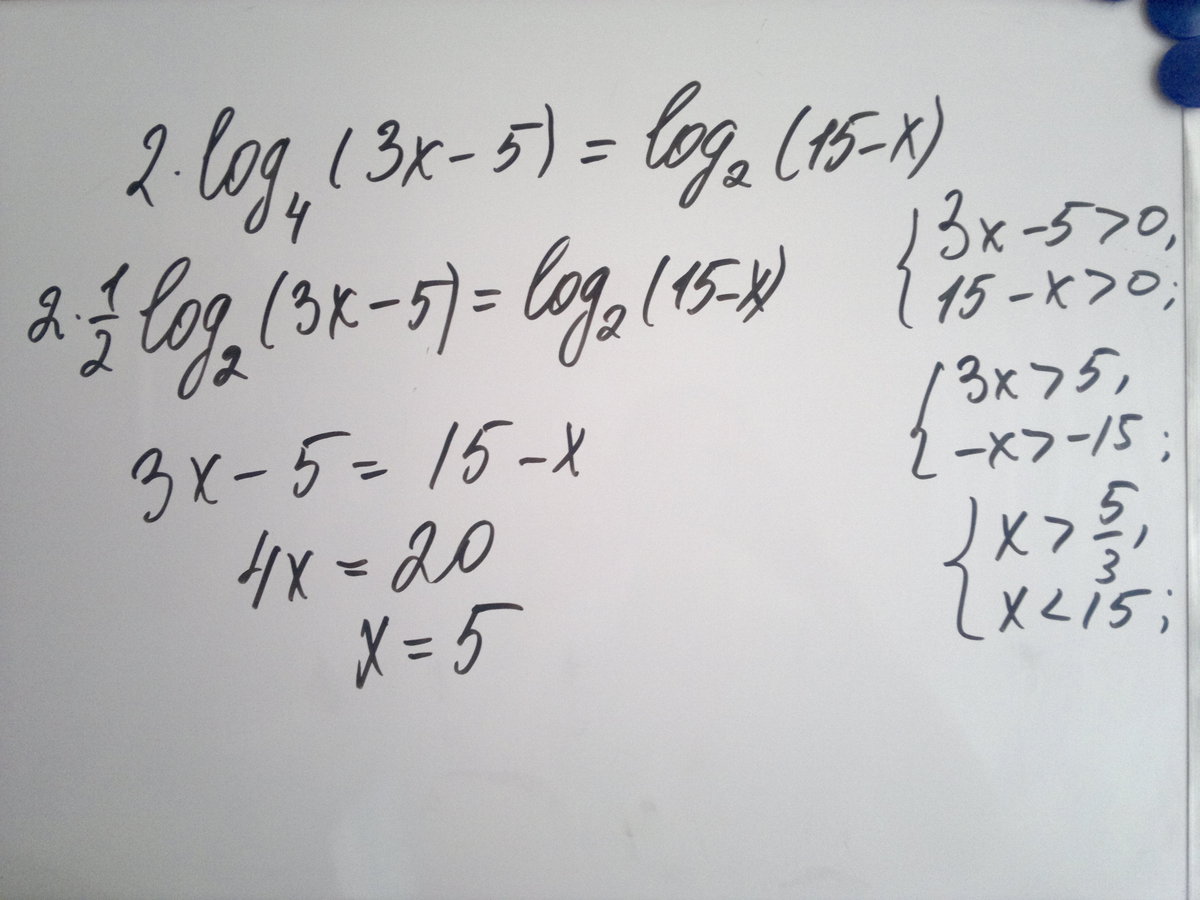 2·log₄(3x-5)=log₂(15-x)
2·1/2 log₂(3x-5)=log₂(15-x)
3x-5=15-x
4x=20
x=5
{3x-5>0,
15-x>0;
{3x>5,
-x>-15;
{x>5/3,
x<15;